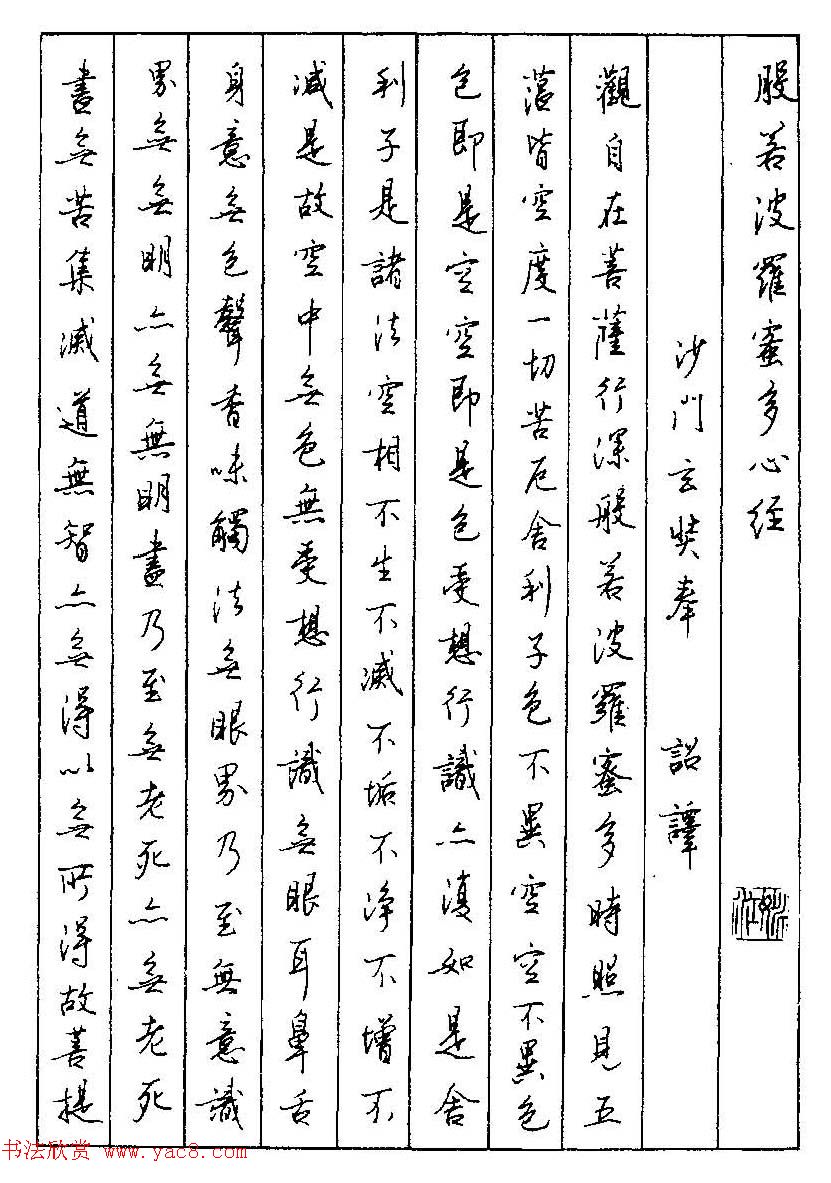 般若波羅蜜多心经
沙門玄奘奉 詔譯
觀自在菩薩行深般若波羅蜜多時照見五
蕰皆空度一切苦厄舍利子色不異空空不異色
色即是空空即是色受想行識亦復如是舍
利子是諸法空相不生不滅不垢不净不增不
減是故空中無色無受想行識無眼耳鼻舌
身意無色聲香味觸法無眼界乃至無意識
界無無明亦無無明盡乃至無老死亦無老死
盡無苦集滅道無智亦無得以無所得故菩提
书法欣赏 www.yac8.com